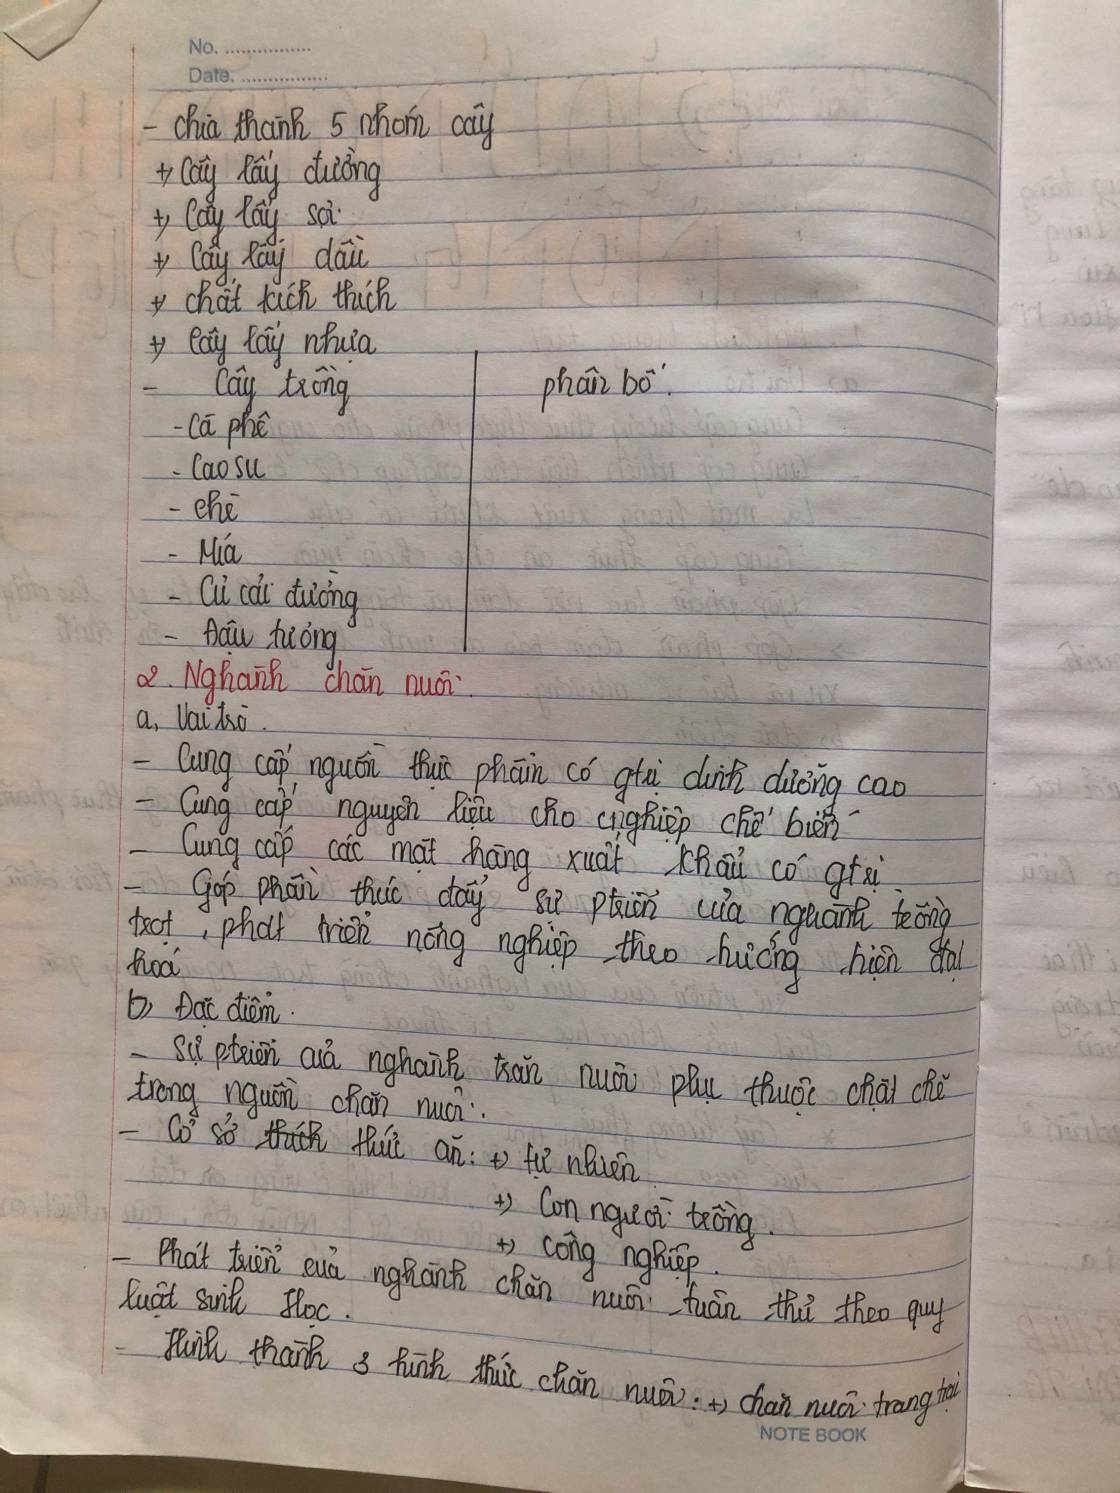 No. ................
Date. ................
- chia thành 5 nhóm cây
+, Cây lấy đường
+, Cây lấy sợi
+, Cây lấy dầu
+, chất kích thích
+, Cây lấy nhựa
- Cây trồng phân bố.
- Cà phê
- Cao su
- chè
- Mía
- Củ cải đường
- Đậu tương
2. Nghành chăn nuôi.
a, Vai trò.
- Cung cấp nguồn thực phẩm có gtrị dinh dưỡng cao
- Cung cấp nguyên liệu cho cnghiệp chế biến
- Cung cấp các mặt hàng xuất khẩu có gtrị
- Góp phần thúc đẩy sự ptriển của nghành trồng
trọt, phát triển nông nghiệp theo hướng hiện đại
hoá
b, Đặc điểm.
- Sự ptriển của nghành trăn nuôi phụ thuộc chặt chẽ
trong nguồn chăn nuôi.
- Cơ sở thức ăn: +, tự nhiên
+, Con người trồng.
+, công nghiệp.
- Phát triển của nghành chăn nuôi tuân thủ theo quy
luật sinh học.
- Hình thành 3 hình thức chăn nuôi: +, chăn nuôi trang trại
NOTE BOOK